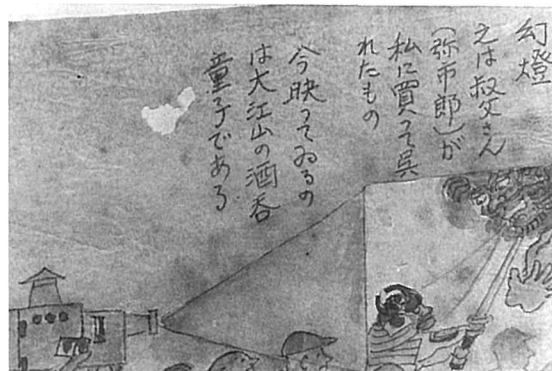 幻燈
之は叔父さん
(弥市郎)が
私に買って呉
れたもの
今映ってゐるの
は大江山の酒呑
童子である